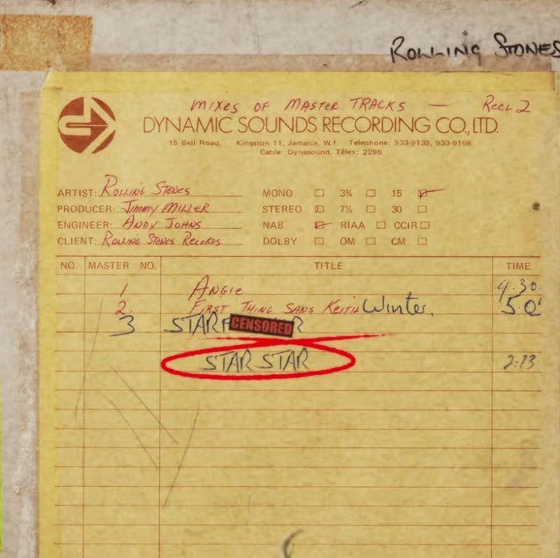 ROLLING STONES
MIXES OF MASTER TRACKS — Reel 2
DYNAMIC SOUNDS RECORDING CO., LTD.
15 Bell Road, Kingston 11, Jamaica, W.I Telephone: 933-9138, 933-9168
Cable: Dynasound, Télex: 2296
ARTIST: ROLLING STONES MONO 3¾ 15
PRODUCER: JIMMY MILLER STEREO 7½ 30
ENGINEER: ANDY JOHNS NAB RIAA CCIR
CLIENT: ROLLING STONES RECORDS DOLBY OM CM
NO. MASTER NO. TITLE TIME
1 ANGIE 4.30
2 FIRST THING SANS KEITH Winter. 50
3 STARF CENSORED R
STAR STAR 2:13